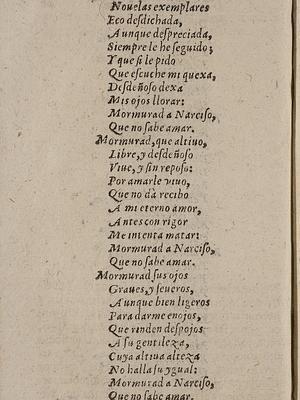 Nouelas exemplares
Eco desdichada,
Aunque despreciada,
Siempre le he seguido;
Y que si le pido
Que escuche mi quexa,
Desdeñoso dexa
Mis ojos llorar:
Mormurad a Narciso,
Que no sabe amar.
Mormurad, que altiuo,
Libre, y desdeñoso
Viue, y sin reposo:
Por amarle viuo,
Que no da recibo
A mi eterno amor,
Antes con rigor
Me intenta matar:
Mormurad a Narciso,
Que no sabe amar.
Mormurad sus ojos
Graues, y seueros,
Aunque bien ligeros
Para darme enojos,
Que rinden despojos
A su gentileza,
Cuya altiua alteza
No halla su ygual:
Mormurad a Narciso,
Que no sabe amar.